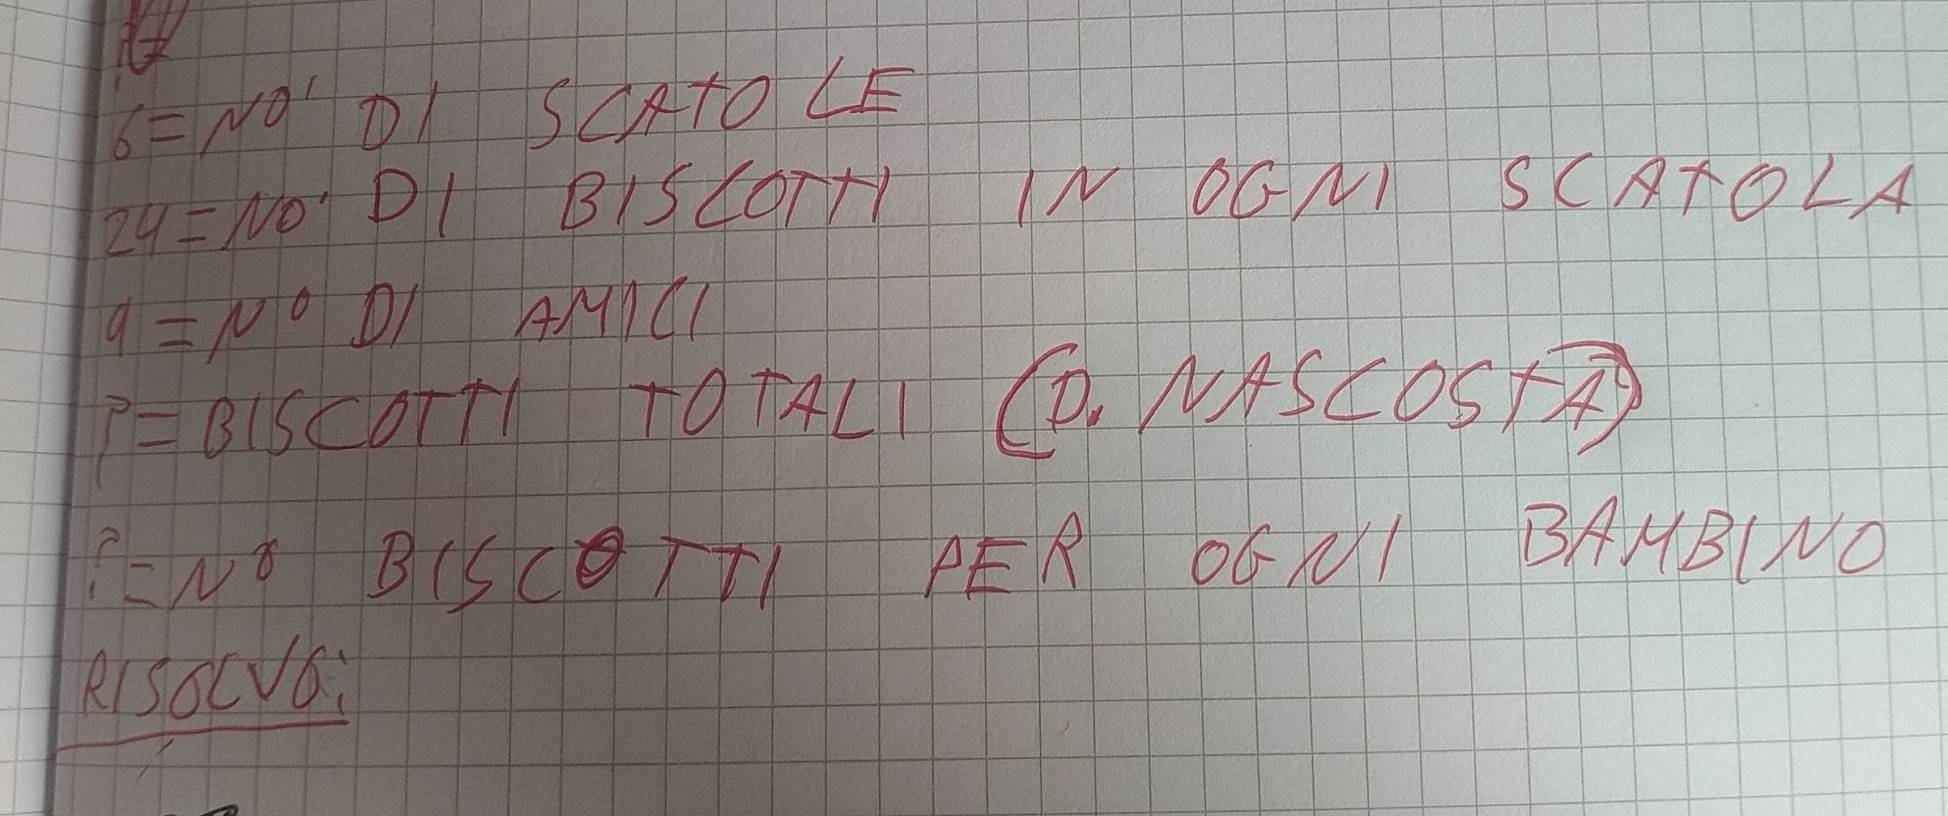 6=NO' DI SCATOLE
24=NO' DI BISCOTTI IN OGNI SCATOLA
9=N° DI AMICI
?=BISCOTTI TOTALI (D. NASCOSTA)
?=N° BISCOTTI PER OGNI BAMBINO
RISOLVO: